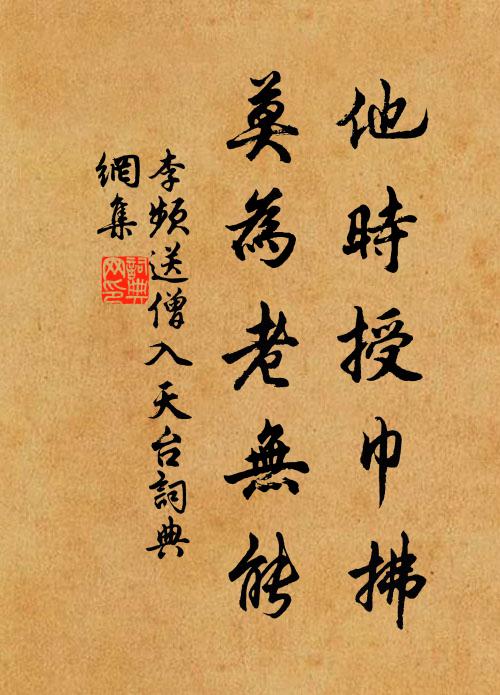 他時授巾拂
莫為老無能
李頻送僧入天台詞典
網集
詞典
网印